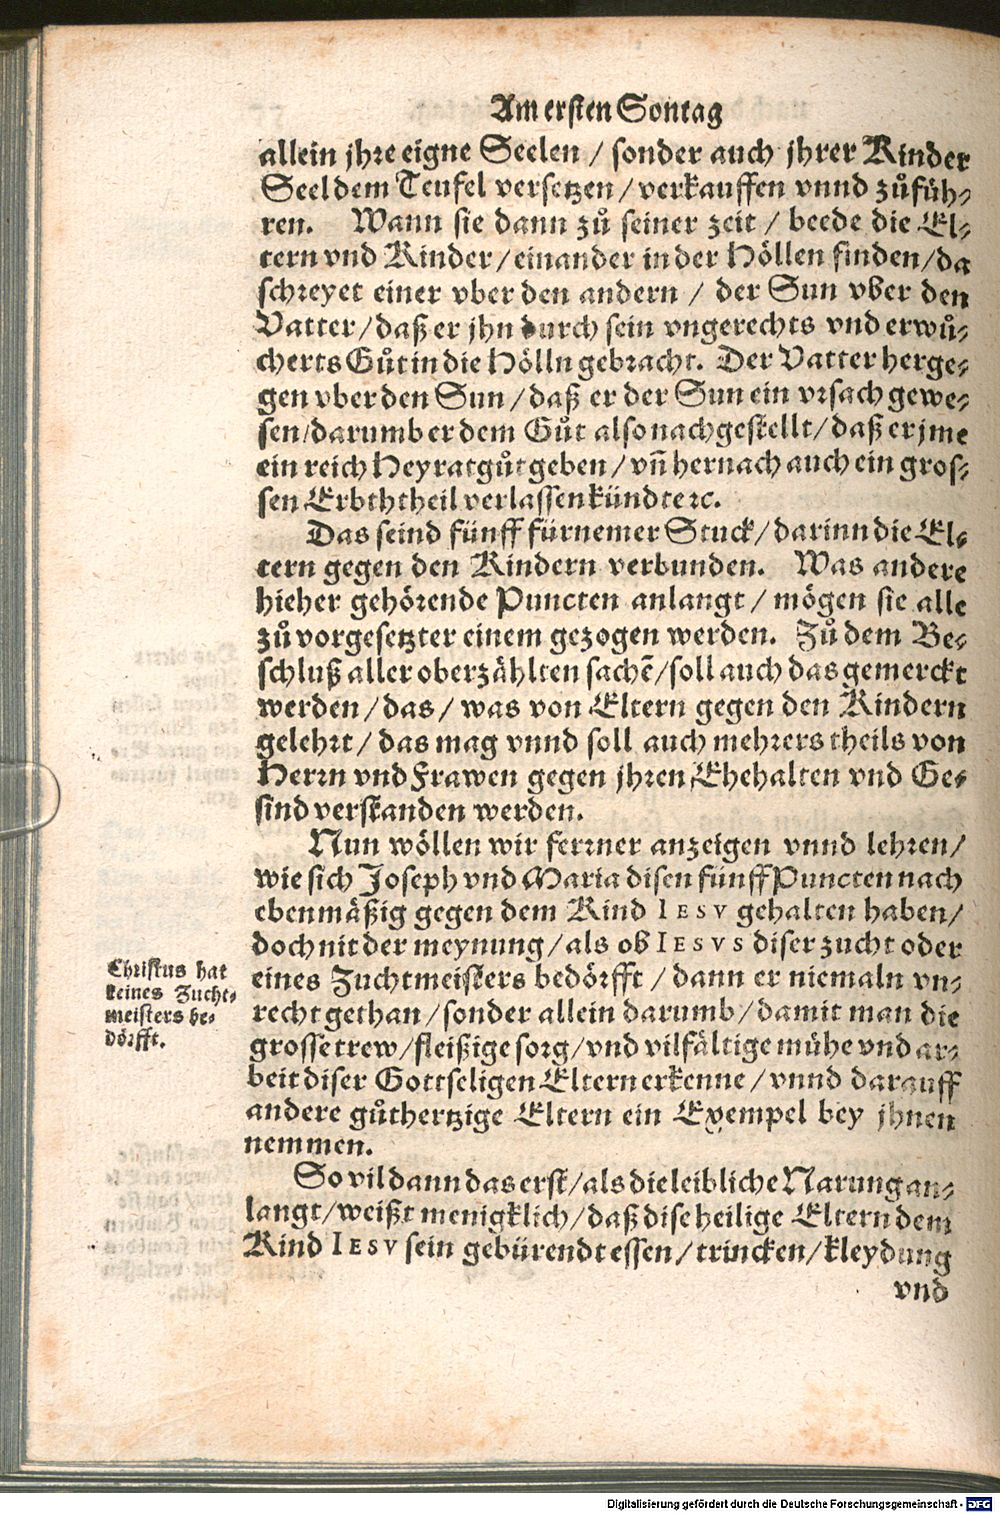 Am ersten Sontag
allein jhre eigne Seelen / sonder auch jhrer Kinder
Seel dem Teufel versetzen / verkauffen vnnd zůfüh-
ren. Wann sie dann zů seiner zeit / beede die El-
tern vnd Kinder / einander in der Höllen finden / da
schreyet einer vber den andern / der Sun vber den
Vatter / daß er jhn durch sein vngerechts vnd erwů-
cherts Gůt in die Hölln gebracht. Der Vatter herge-
gen vber den Sun / daß er der Sun ein vrsach gewe-
sen / darumb er dem Gůt also nachgestellt / daß er jme
ein reich Heyratgůt geben / vñ hernach auch ein gros-
sen Erbththeil verlassen kündte ꝛc.
Das seind fünff fürnemer Stuck / darinn die El-
tern gegen den Kindern verbunden. Was andere
hieher gehörende Puncten anlangt / mögen sie alle
zů vorgesetzter einem gezogen werden. Zů dem Be-
schluß aller oberzählten sachē / soll auch das gemerckt
werden / das / was von Eltern gegen den Kindern
gelehrt / das mag vnnd soll auch mehrers theils von
Herrn vnd Frawen gegen jhren Ehehalten vnd Ge-
sind verstanden werden.
Nun wöllen wir ferrner anzeigen vnnd lehren /
wie sich Joseph vnd Maria disen fünff Puncten nach
ebenmäßig gegen dem Kind IESV gehalten haben /
doch nit der meynung / als ob IESVS diser zucht oder
eines Zuchtmeisters bedörfft / dann er niemaln vn-
recht gethan / sonder allein darumb / damit man die
grosse trew / fleißige sorg / vnd vilfältige mühe vnd ar-
beit diser Gottseligen Eltern erkenne / vnnd darauff
andere gůthertzige Eltern ein Exempel bey jhnen
nemmen.
Christus hat
keines Zucht-
meisters be-
dörfft.
So vil dann das erst / als die leibliche Narung an-
langt / weißt menigklich / daß dise heilige Eltern dem
Kind IESV sein gebürendt essen / trincken / kleydung
vnd
Digitalisierung gefördert durch die Deutsche Forschungsgemeinschaft - DFG